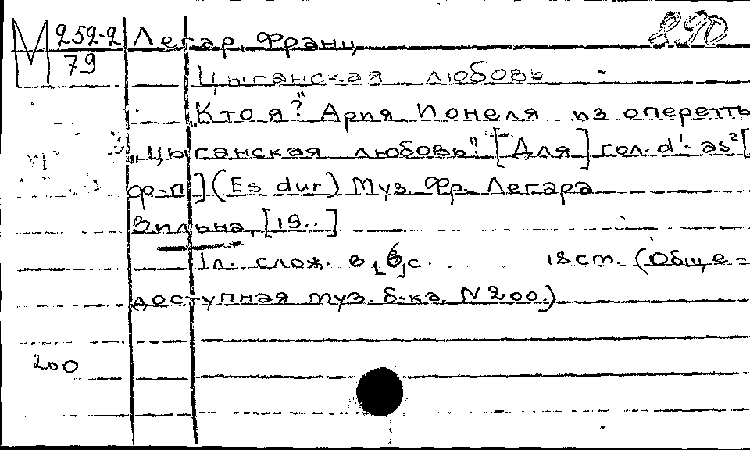 М 252-2 290
79
Легар, Франц
Цыганская любовь
Кто я?" Ария Ионеля из оперетты
„Цыганская любовь". [Для] гол. d'-as² [
ф-п] (Es dur) Муз. Фр. Легара
Вильна, [19..]
1л. слож. в [8]с. 18 ст. (Обще=
доступная муз. б-ка. N 200.)
200